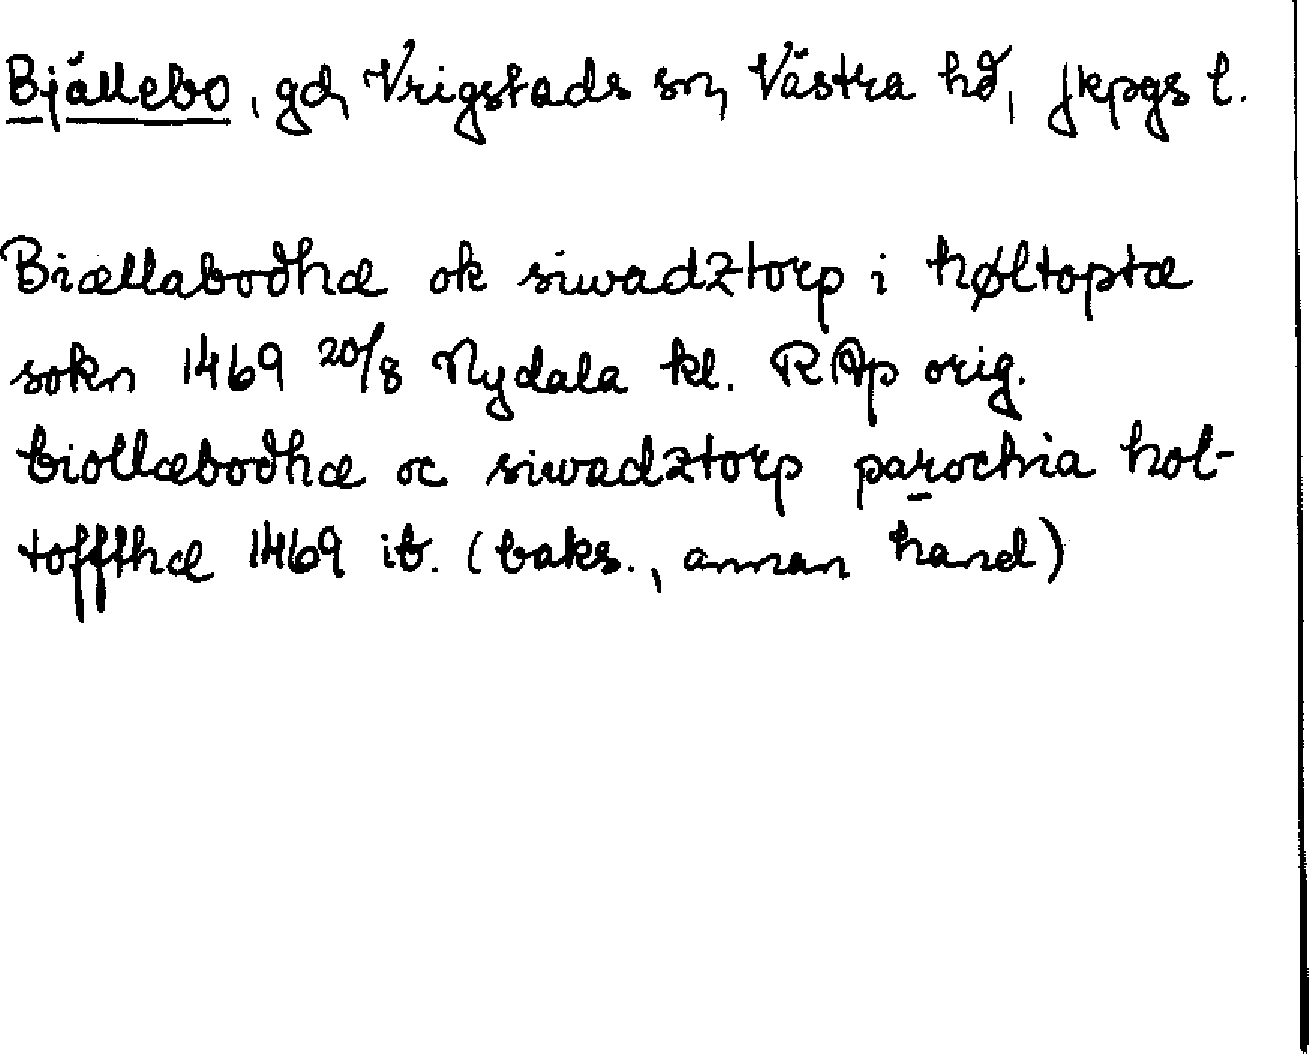 Bjällebo, gd, Vrigstads sn, Västra hd, Jkpgs l.
Biællabodhæ ok siwadztorp i høltoptæ
sokn 1469 20/8 Nydala kl. RAp orig.
biollæbodhæ oc siwadztorp parochia hol-
toffthæ 1469 ib. (baks., annan hand)